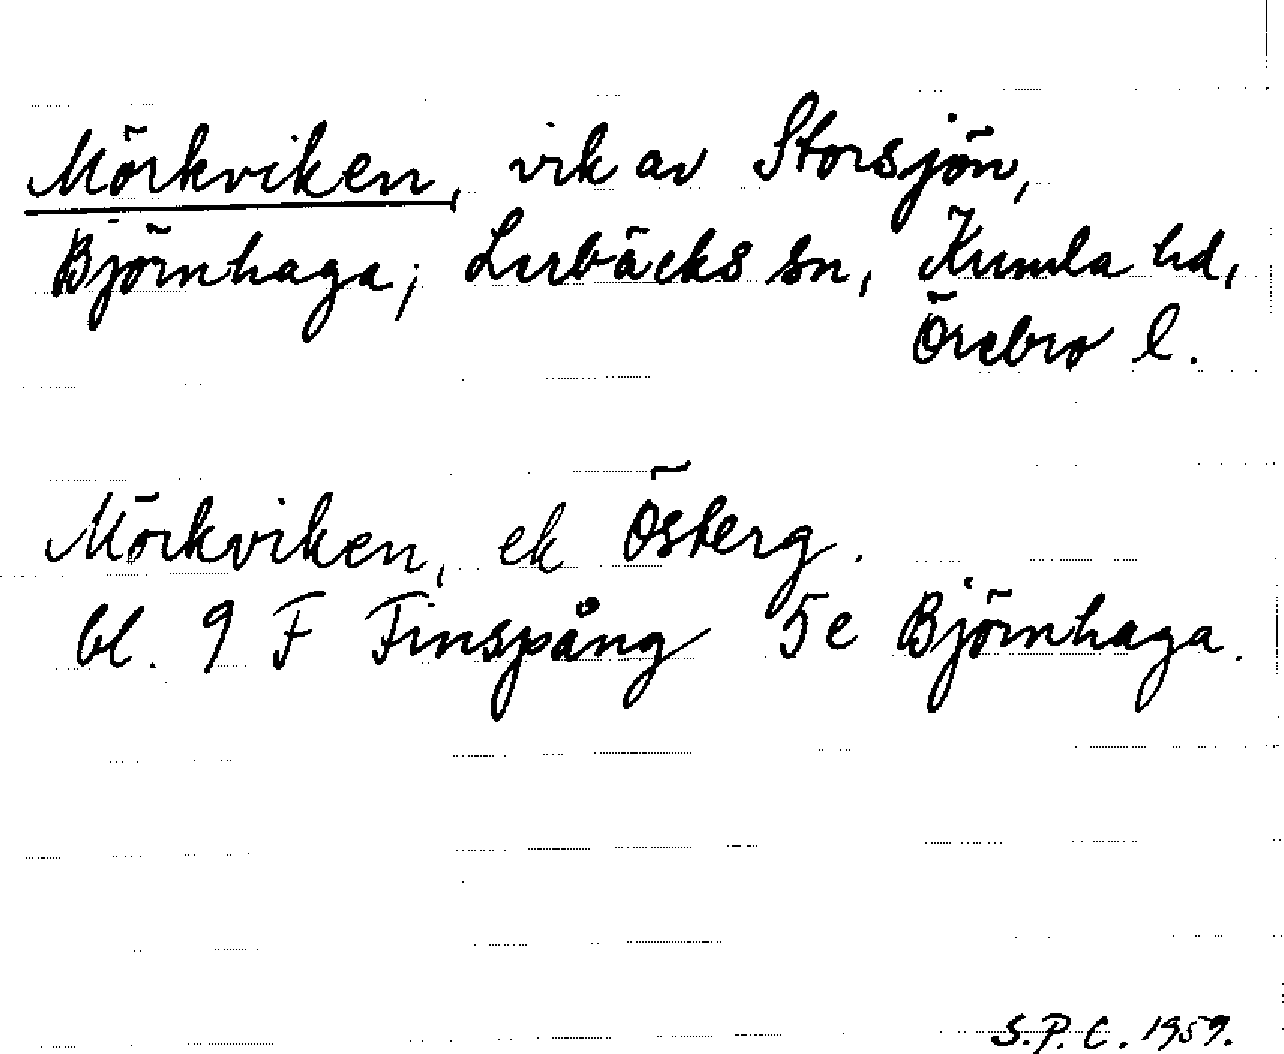 Mörkviken, vik av Storsjön,
Björnhaga, Lerbäcks sn, Kumla hd,
Örebro l.
Mörkviken, ek Österg.
bl. 9 F Finspång 5e Björnhaga.
S.P.C. 1959.